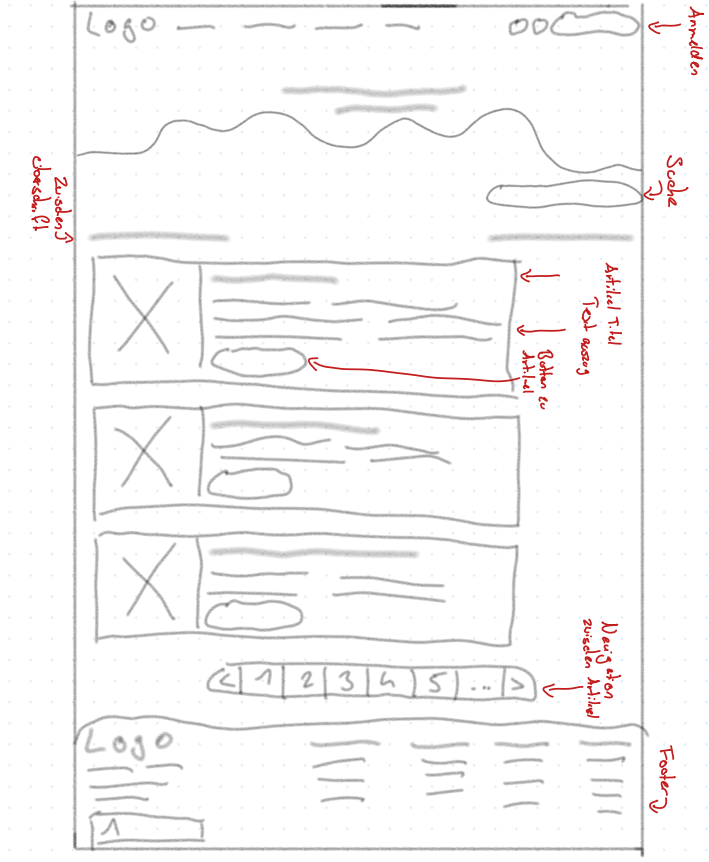 Logo
Anmelden
Suche
Zwischen
überschrift
Artikel Titel
Text auszug
Button zu
Artikel
< 1 2 3 4 5 ... >
Navigation
zwischen Artikel
Logo
Footer
1